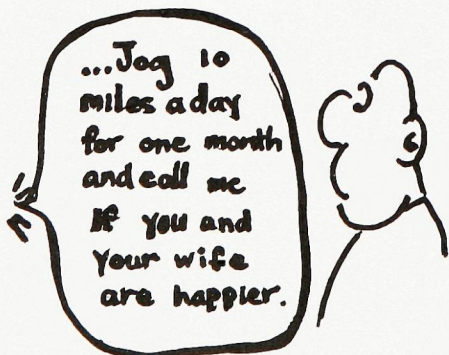 ...Jog 10
miles a day
for one month
and call me
If you and
your wife
are happier.